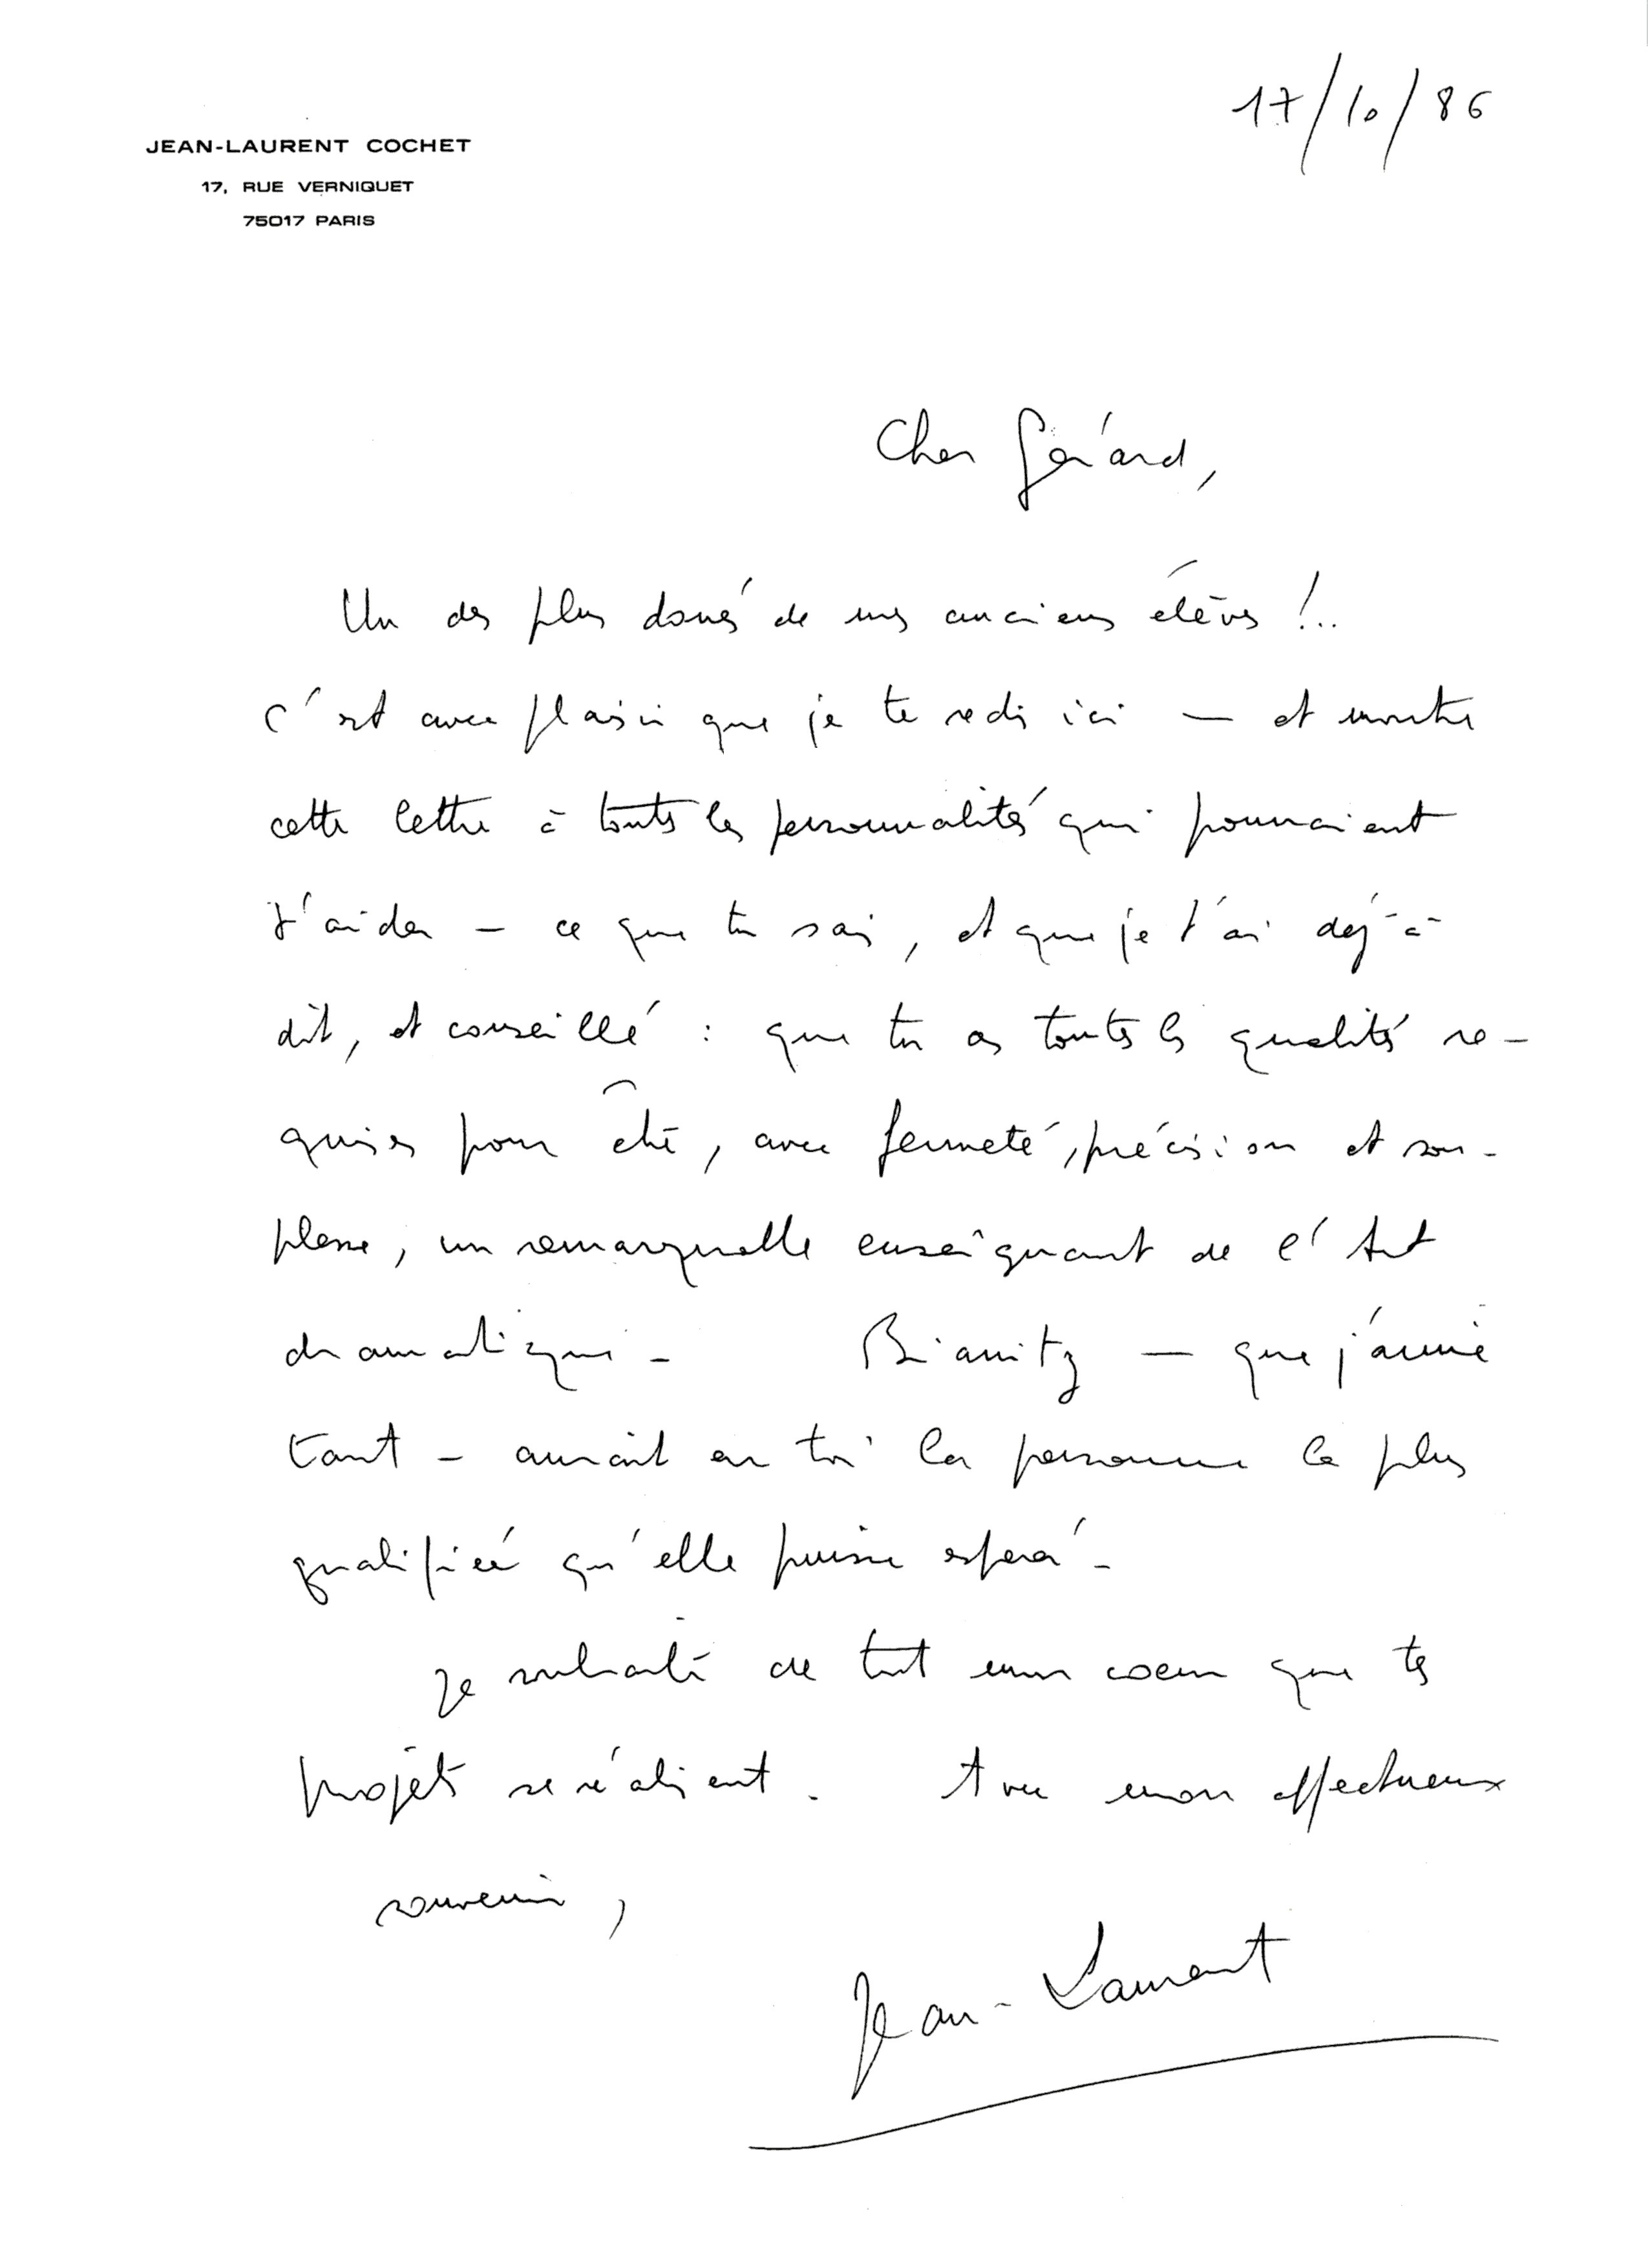 17/10/86
JEAN-LAURENT COCHET
17, RUE VERNIQUET
75017 PARIS
Cher Gérard,
Un des plus doués de mes anciens élèves !..
C'est avec plaisir que je te redis ici — et montre
cette lettre à toutes les personnalités qui pourraient
t'aider — ce que tu sais, et que je t'ai déjà
dit, et conseillé : que tu as toutes les qualités re-
quises pour être, avec fermeté, précision et sou-
plesse, un remarquable enseignant de l'Art
dramatique - Biarritz — que j'aime
tant - aurait en toi la personne la plus
qualifiée qu'elle puisse espérer -
Je souhaite de tout mon coeur que tes
projets se réalisent. Avec mon affectueux
souvenir,
Jean-Laurent